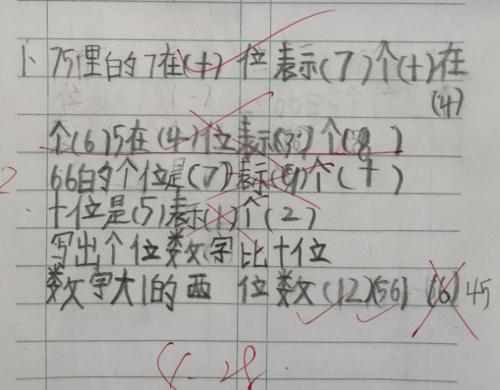 1、75里的7在(十)位表示(7)个(十)在
(4)
个(6)5在(4)位表示(3)个(8)
2
66的个位是(7)表示(9)个(十)
十位是(5)表示(1)个(2)
写出个位数字比十位
数字大1的两 位数(12)(56) (6) 45
8.28